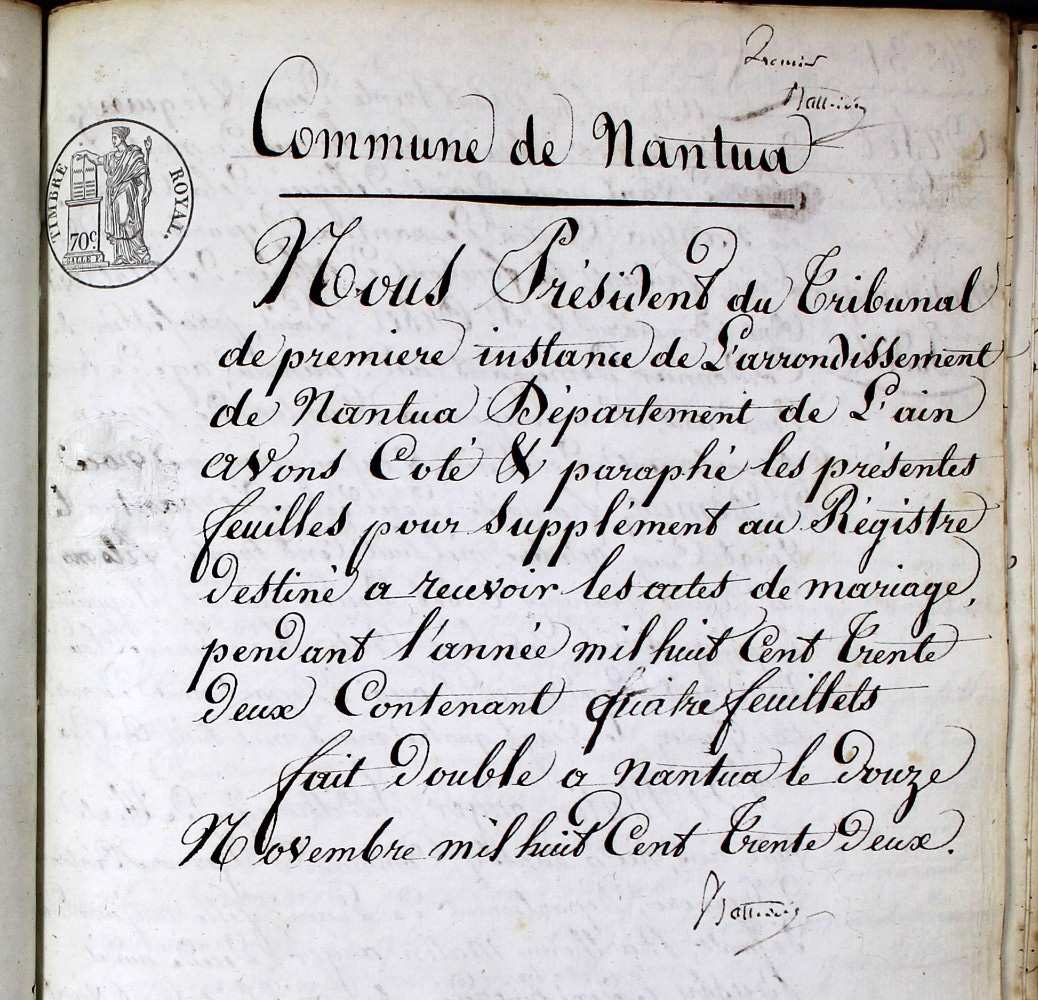 Premier
Commune de Nantua
TIMBRE ROYAL.
70c
Nous Président du Tribunal
de premiere instance de L'arrondissement
de Nantua Département de L'ain
avons Coté & paraphé les présentes
feuilles pour Supplément au Régistre
destiné a recevoir les actes de mariage,
pendant l'année mil huit Cent Trente
deux Contenant quatre feuillets
fait double a Nantua le douze
Novembre mil huit Cent Trente deux.